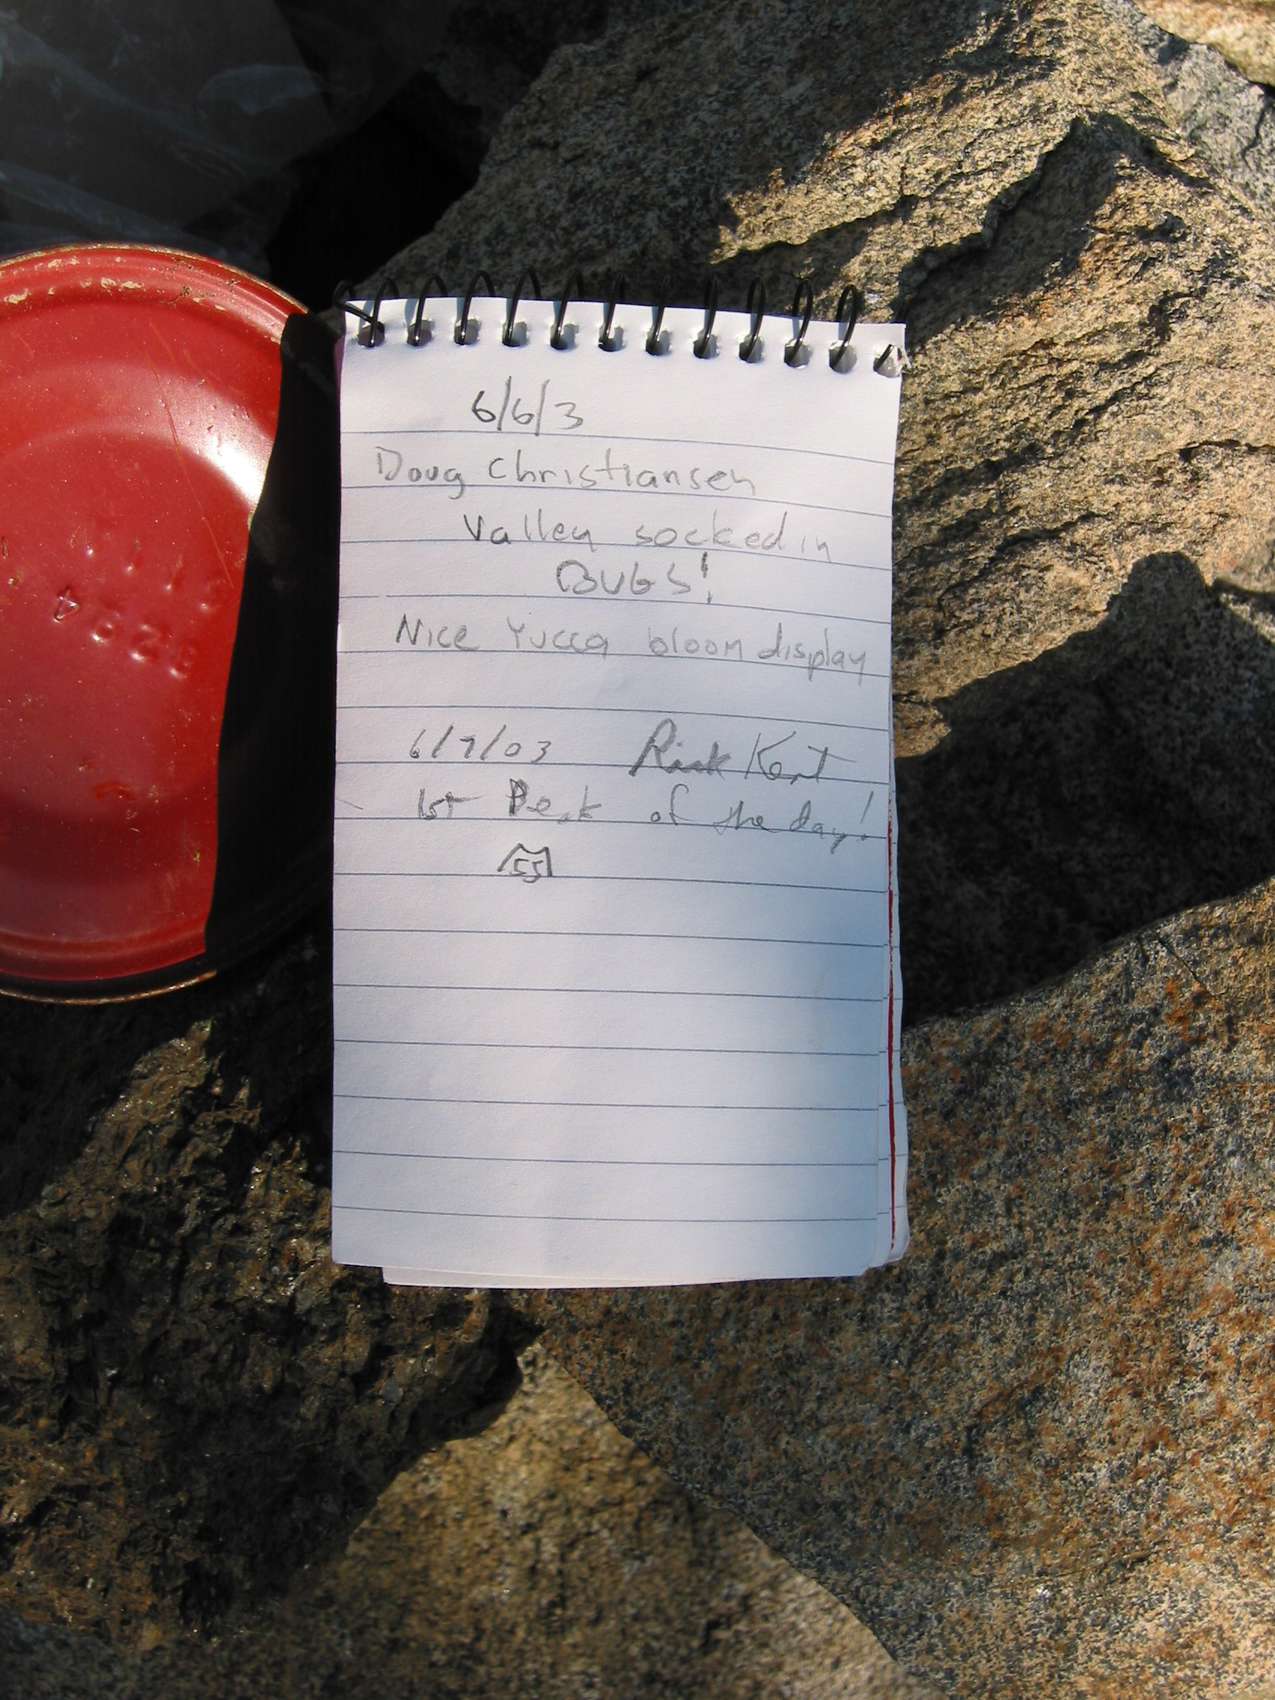 6/6/3
Doug Christiansen
Valley socked in
BUGS!
Nice Yucca bloom display
6/7/03 Rick Kent
1st Peak of the day!